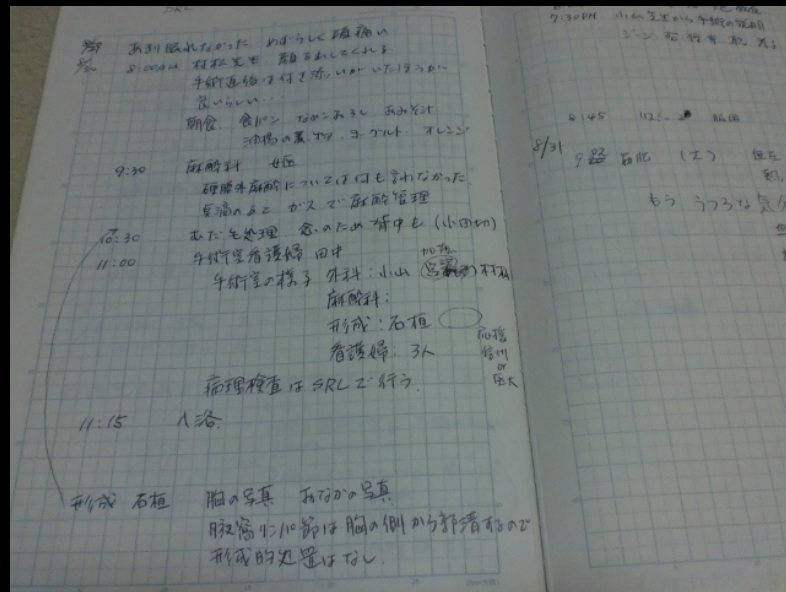 あまり眠れなかった めずらしく頭痛い
8:00AM 村松先生 顔を出してくれる
手術直後は付き添いがいたほうが
良いらしい…
朝食 食パン なめこおろし おみそ汁
ヨーグルト オレンジ
9:30 麻酔科 女医
硬膜外麻酔については何も言われなかった
点滴のあと ガスで麻酔管理
10:30 むだ毛処理 念のため背中も (小田切)
11:00 手術室看護婦 田中
手術室の様子 外科:小山 村松
麻酔科:
形成:石垣
看護婦:3人
応援
信州
or
医大
病理検査はSRLで行う.
11:15 入浴.
形成 石垣 胸の写真 おなかの写真
腋窩リンパ節は胸の側から郭清するので
形成的処置はなし.
7:30PM 小山先生から手術の説明
8:45
8/31
(土)
もう うつろな気分